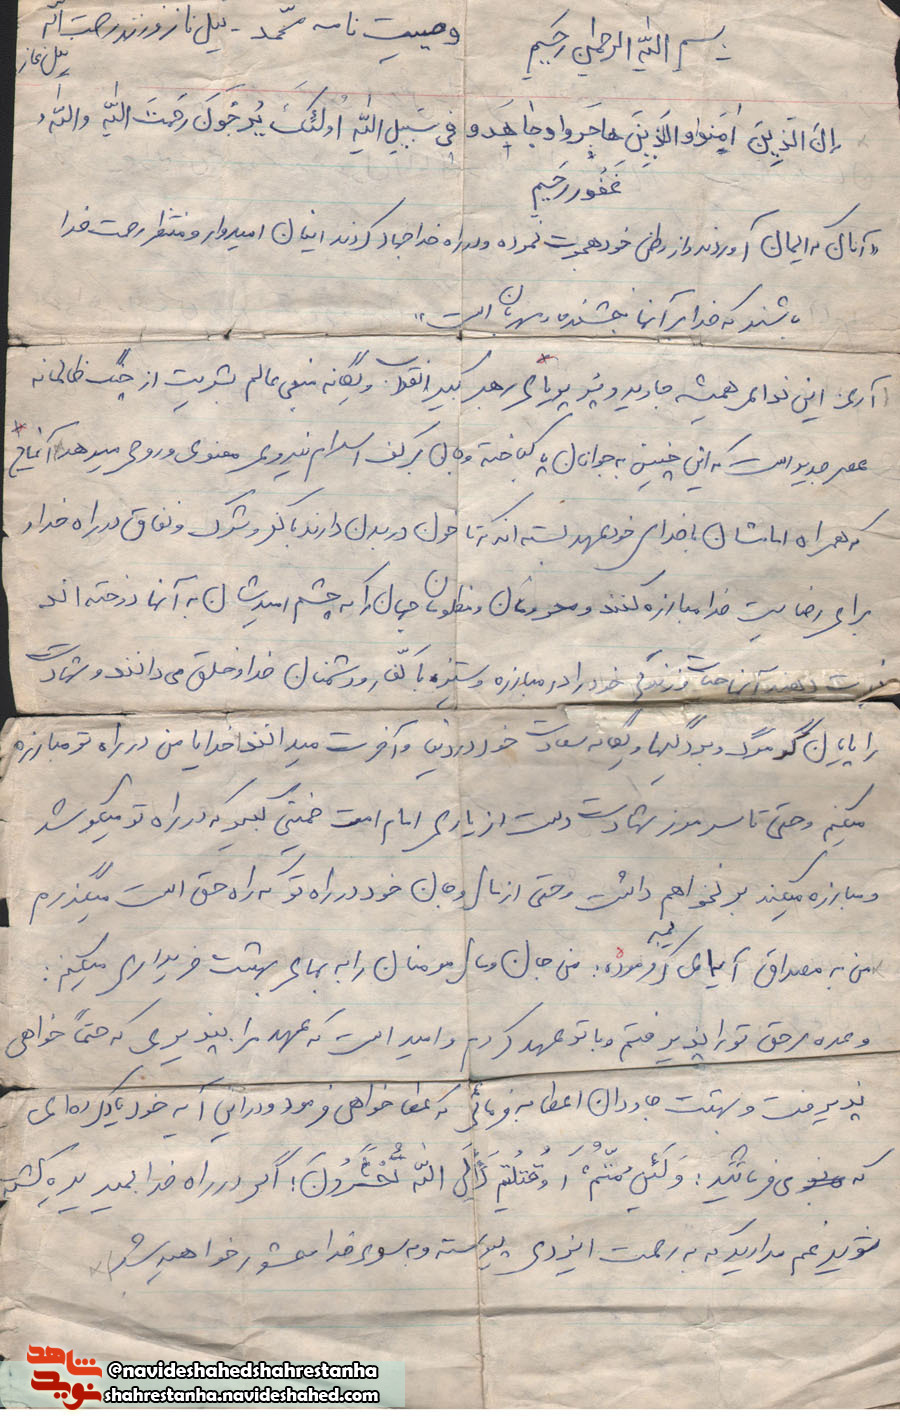 بسم الله الرحمن رحیم
وصیت نامه محمد - بیل ناز فرزند رحمت الله
بیل ناز
إن الَّذِینَ اٰمَنوا وَالَّذِینَ هاجَروا وجاهَدو فِی سَبِیلِ اللّٰهِ اُولئِکَ یُرجُونَ رَحمَتَ اللّٰهِ واللّٰهُ
غَفُور رَحیم
«آنان که ایمان آوردند و از وطن خود هجرت نموده و در راه خدا جهاد کردند اینان امیدوار و منتظر رحمت خدا
باشند که خدا بر آنها بخشنده و مهربان است"
آری این ندای همیشه جاوید و پویای رهبر کبیر انقلاب ویگانه منجی عالم بشریت از چنگ ظالمانه
عصر جدید است که این چنین به جوانان پاکباخته و جان برکف اسلام نیروی معنوی و روحی میدهد آنهایی
که همراه امامشان با خدای خود عهد بسته اند که تا خون در بدن دارند با کفر و شرک و نفاق در راه خدا و
برای رضایت خدا مبارزه کنند و محرومان و مظلومان جهان را که چشم امیدشان به آنها دوخته اند
نجات دهند آنها حیات و زندگی خود را در مبارزه وستیزه با کفار و دشمنان خدا و خلق می دانند و شهادت
را پایان گر مرگ و بردگیها و یگانه سعادت خود در دنیا و آخرت میدانند خدایا من در راه تو مبارزه
میکنم وحتی تا سر مرز شهادت دست از یاری امام امت خمینی کبیر که در راه تو میکوشد
و مبارزه میکند بر نخواهم داشت وحتی از مال و جان خود در راه تو که راه حق است میگذرم
من به مصداق آیه‌ای که فرموده: من جان و مال مومنان را به بهای بهشت خریداری میکنم:
وعده بر حق تو را پذیرفتم و با تو عهد کردم و امید است که عهد مرا بپذیری که حتماً خواهی
پذیرفت و بهشت جاودان اعطا به فرمائی که عطا خواهی فرمود و در این آیه خود یادکرده‌ای
که می فرمائید: وَلَئِن مُتُّم اَو قُتِلتُم لَاِلَی اللّٰه تُحشَرُونَ: اگر در راه خدا بمیرید یا کشته
شوید غم مدارید که به رحمت ایزدی پیوسته و به سوی خدا محشور خواهید شد
شاهد
نوید
@navideshahedshahrestanha
shahrestanha.navideshahed.com